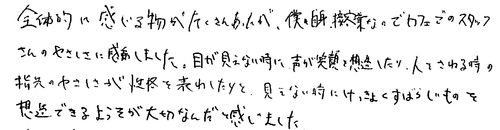 全体的に感じる物がたくさんあったが、僕は自販機業なのでカフェでのスタッフ
さんのやさしさに感動しました。目が見えない時に声が笑顔を想造したり、人とさわる時の
指先のやさしさが性格を表わしたりと、見えない時にけっきょくすばらしいものを
想造できるようそが大切なんだと感じました